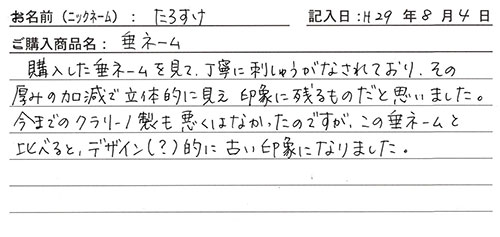 お名前（ニックネーム）： たろすけ 記入日：H29 年 8 月 4 日
ご購入商品名： 垂ネーム
購入した垂ネームを見て、丁寧に刺しゅうがなされており、その
厚みの加減で立体的に見え 印象に残るものだと思いました。
今までのクラリーノ製も悪くはなかったのですが、この垂ネームと
比べると、デザイン(？)的に 古い印象になりました。